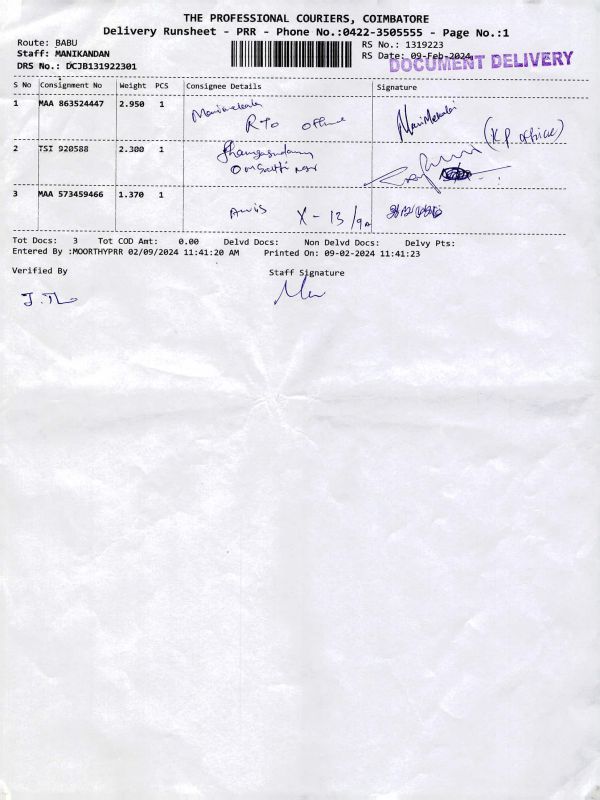 THE PROFESSIONAL COURIERS, COIMBATORE
Delivery Runsheet - PRR - Phone No.:0422-3505555 - Page No.:1
Route: BABU
Staff: MANIKANDAN
DRS No.: DCJB131922301
RS No.: 1319223
RS Date: 09-Feb-2024
DOCUMENT DELIVERY
S No Consignment No Weight PCS Consignee Details Signature
1 MAA 863524447 2.950 1 Manimekala
RTO office
ManiMekalai
2 TSI 920588 2.300 1
(K.P. office)
3 MAA 573459466 1.370 1 X-13/9A
Tot Docs: 3 Tot COD Amt: 0.00 Delvd Docs: Non Delvd Docs: Delvy Pts:
Entered By :MOORTHYPRR 02/09/2024 11:41:20 AM Printed On: 09-02-2024 11:41:23
Verified By Staff Signature